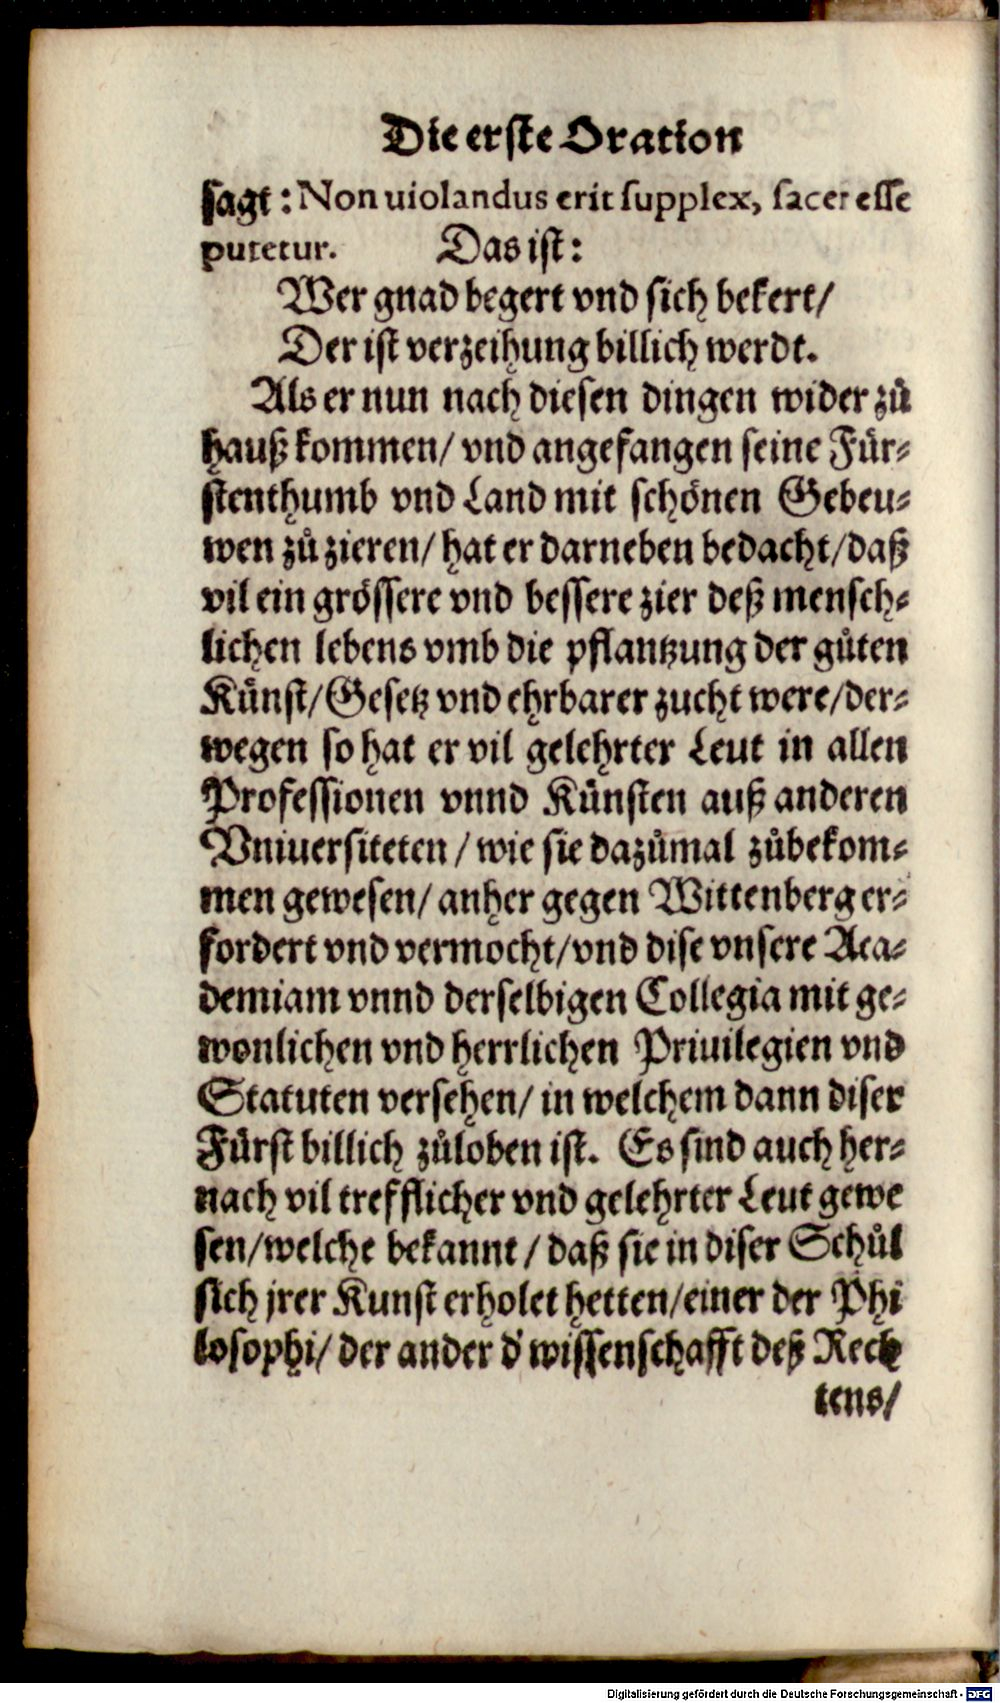 Die erste Oration
sagt: Non uiolandus erit supplex, sacer esse
putetur. Das ist:
Wer gnad begert vnd sich bekert/
Der ist verzeihung billich werdt.
Als er nun nach diesen dingen wider zů
hauß kommen/ vnd angefangen seine Für⸗
stenthumb vnd Land mit schönen Gebeu⸗
wen zů zieren/ hat er darneben bedacht/ daß
vil ein grössere vnd bessere zier deß mensch⸗
lichen lebens vmb die pflantzung der gůten
Künst/ Gesetz vnd ehrbarer zucht were/ der⸗
wegen so hat er vil gelehrter Leut in allen
Professionen vnnd Künsten auß anderen
Vniuersiteten / wie sie dazůmal zůbekom⸗
men gewesen/ anher gegen Wittenberg er⸗
fordert vnd vermocht/ vnd dise vnsere Aca⸗
demiam vnnd derselbigen Collegia mit ge⸗
wonlichen vnd herrlichen Priuilegien vnd
Statuten versehen/ in welchem dann diser
Fürst billich zůloben ist. Es sind auch her⸗
nach vil trefflicher vnd gelehrter Leut gewe
sen/ welche bekannt / daß sie in diser Schůl
sich jrer Kunst erholet hetten/ einer der Phi
losophi/ der ander d' wissenschafft deß Rech
tens/
Digitalisierung gefördert durch die Deutsche Forschungsgemeinschaft - DFG